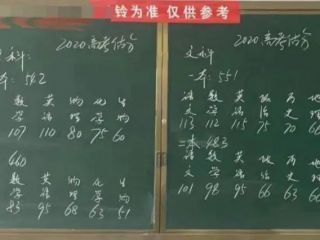 铃为准 仅供参考
2020高考估分
科:
本: 542
数 英 物 化 生
学 语 理 学 物
107 110 80 75 60
460
数 英 物 化 生
学 语 理 学 物
83 95 68 63 51
2020高考估分
文科:
一本: 551
语 数 英 政 历 地
文 学 语 治 史 理
113 112 115 75 70
二本 483
语 数 英 政 历 地
文 学 语 治 史 理
101 98 95 66 63